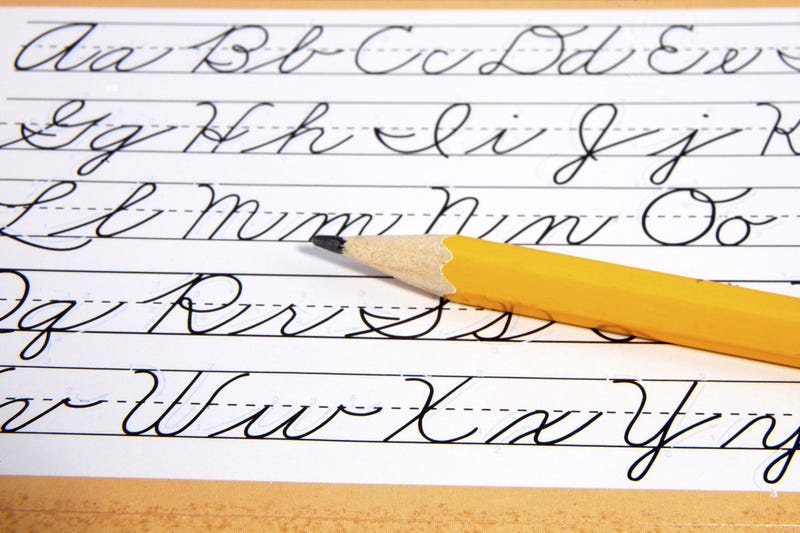 Aa Bb Cc Dd Ee
Gg Hh Ii Jj K
Ll Mm Nn Oo
Qq Rr Ss
v Ww Xx Yy